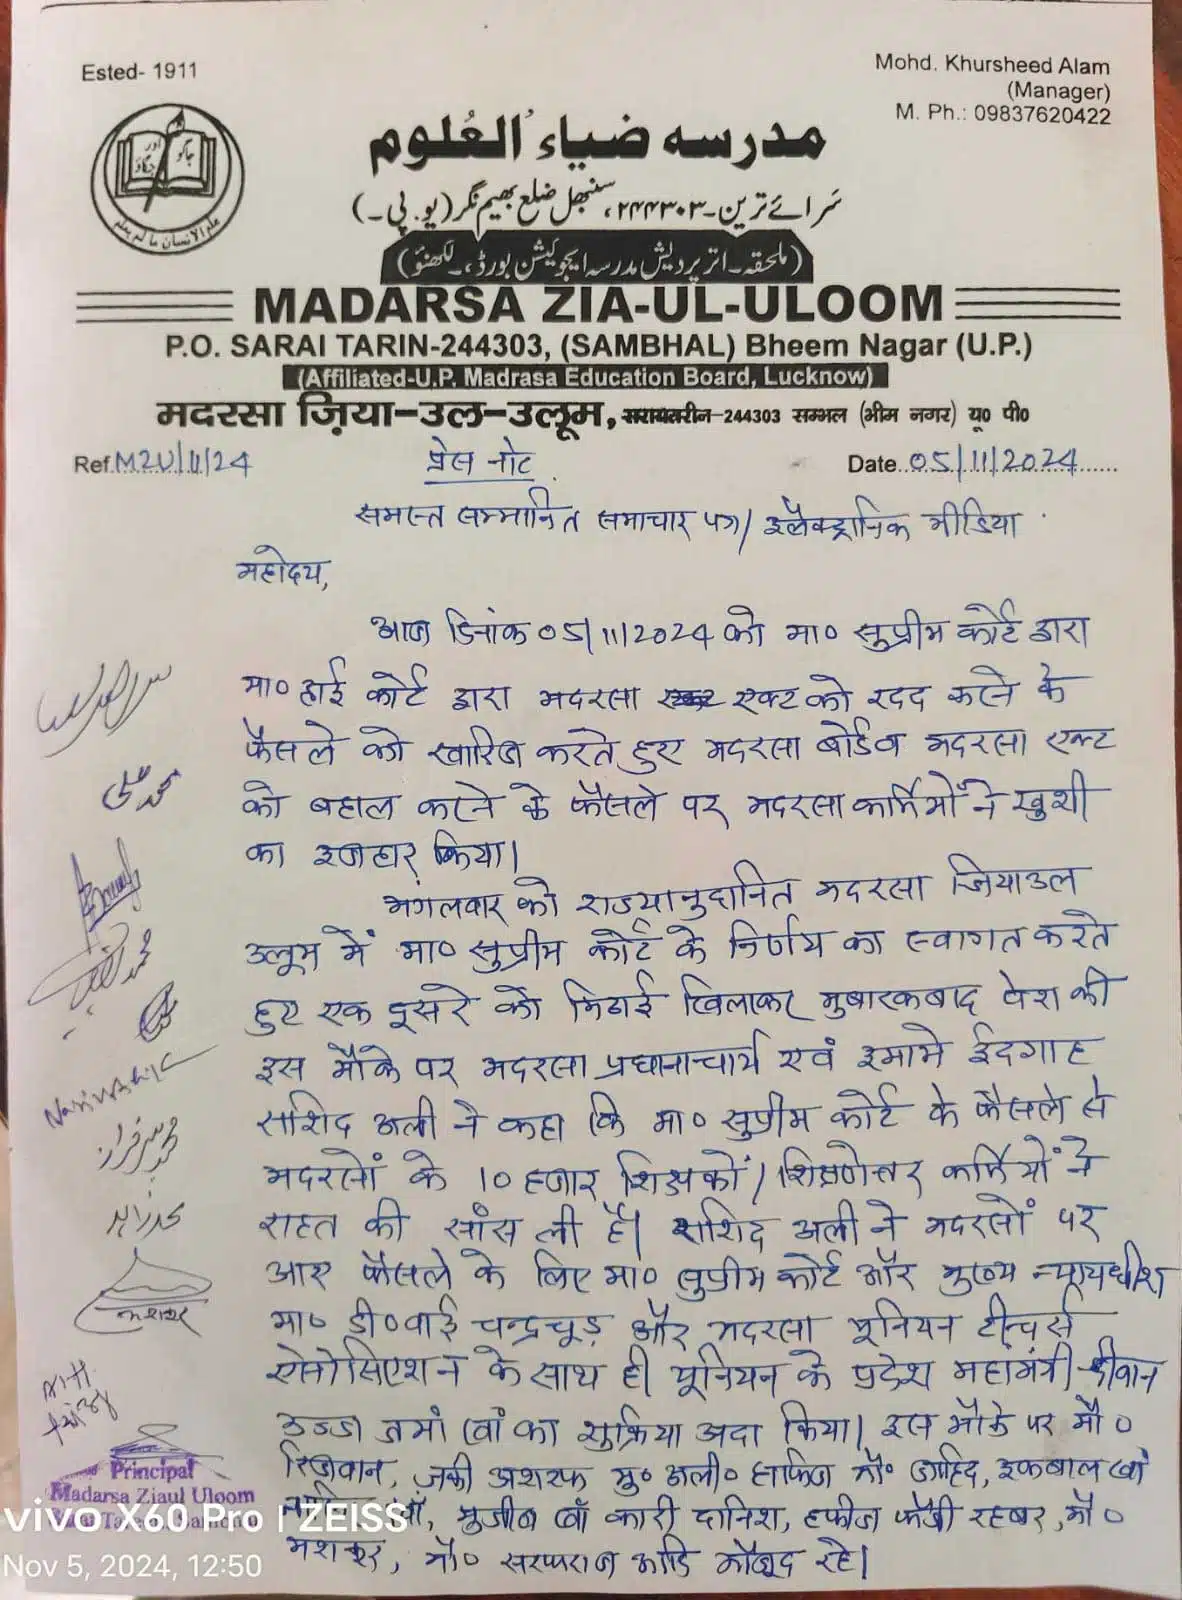 Ested- 1911
Mohd. Khursheed Alam
(Manager)
M. Ph.: 09837620422
مدرسہ ضیاءُ العُلوم
سَرائے ترین۔۲۴۴۳۰۳، سنبھل ضلع بھیم نگر (یو۔پی۔)
(ملحقہ۔ اتر پردیش مدرسہ ایجوکیشن بورڈ، لکھنؤ)
MADARSA ZIA-UL-ULOOM
P.O. SARAI TARIN-244303, (SAMBHAL) Bheem Nagar (U.P.)
(Affiliated-U.P. Madrasa Education Board, Lucknow)
मदरसा ज़िया-उल-उलूम, सरायतरीन-244303 सम्भल (भीम नगर) यू० पी०
Ref. MZU/11/24
प्रेस नोट
Date. 05/11/2024
समस्त सम्मानित समाचार पत्र/ इलैक्ट्रानिक मीडिया
महोदय,
आज दिनांक 05/11/2024 को मा० सुप्रीम कोर्ट द्वारा
मा० हाई कोर्ट द्वारा मदरसा एक्ट को रदद करने के
फैसले को खारिज करते हुए मदरसा बोर्ड व मदरसा एक्ट
को बहाल करने के फैसले पर मदरसा कर्मियों ने खुशी
का इजहार किया।
मंगलवार को राज्यानुदानित मदरसा जियाउल
उलूम में मा० सुप्रीम कोर्ट के निर्णय का स्वागत करते
हुए एक दूसरे को मिठाई खिलाकर मुबारकबाद पेश की
इस मौके पर मदरसा प्रधानाचार्य एवं इमामे ईदगाह
राशिद अली ने कहा कि मा० सुप्रीम कोर्ट के फैसले से
मदरसों के 10 हजार शिक्षकों/ शिक्षणेत्तर कर्मियों ने
राहत की सांस ली है। राशिद अली ने मदरसों पर
आए फैसले के लिए मा० सुप्रीम कोर्ट और मुख्य न्यायधीश
मा० डी०वाई चन्द्रचूड़ और मदरसा यूनियन टीचर्स
ऐसोसिएशन के साथ ही यूनियन के प्रदेश महामंत्री दीवान
खां का शुक्रिया अदा किया। इस मौके पर मौ०
रिजवान, ज़की अशरफ मु० अली० हाफिज मौ० जाहिद, इकबाल खां
खाँ, मुजीब खाँ कारी दानिश, हफीज फैजी रहबर, मौ०
मौ० सरफराज आदि मौजूद रहे।
محمد علی
محمد سرفراز
Principal
Madarsa Ziaul Uloom
vivo X60 Pro | ZEISS
Nov 5, 2024, 12:50